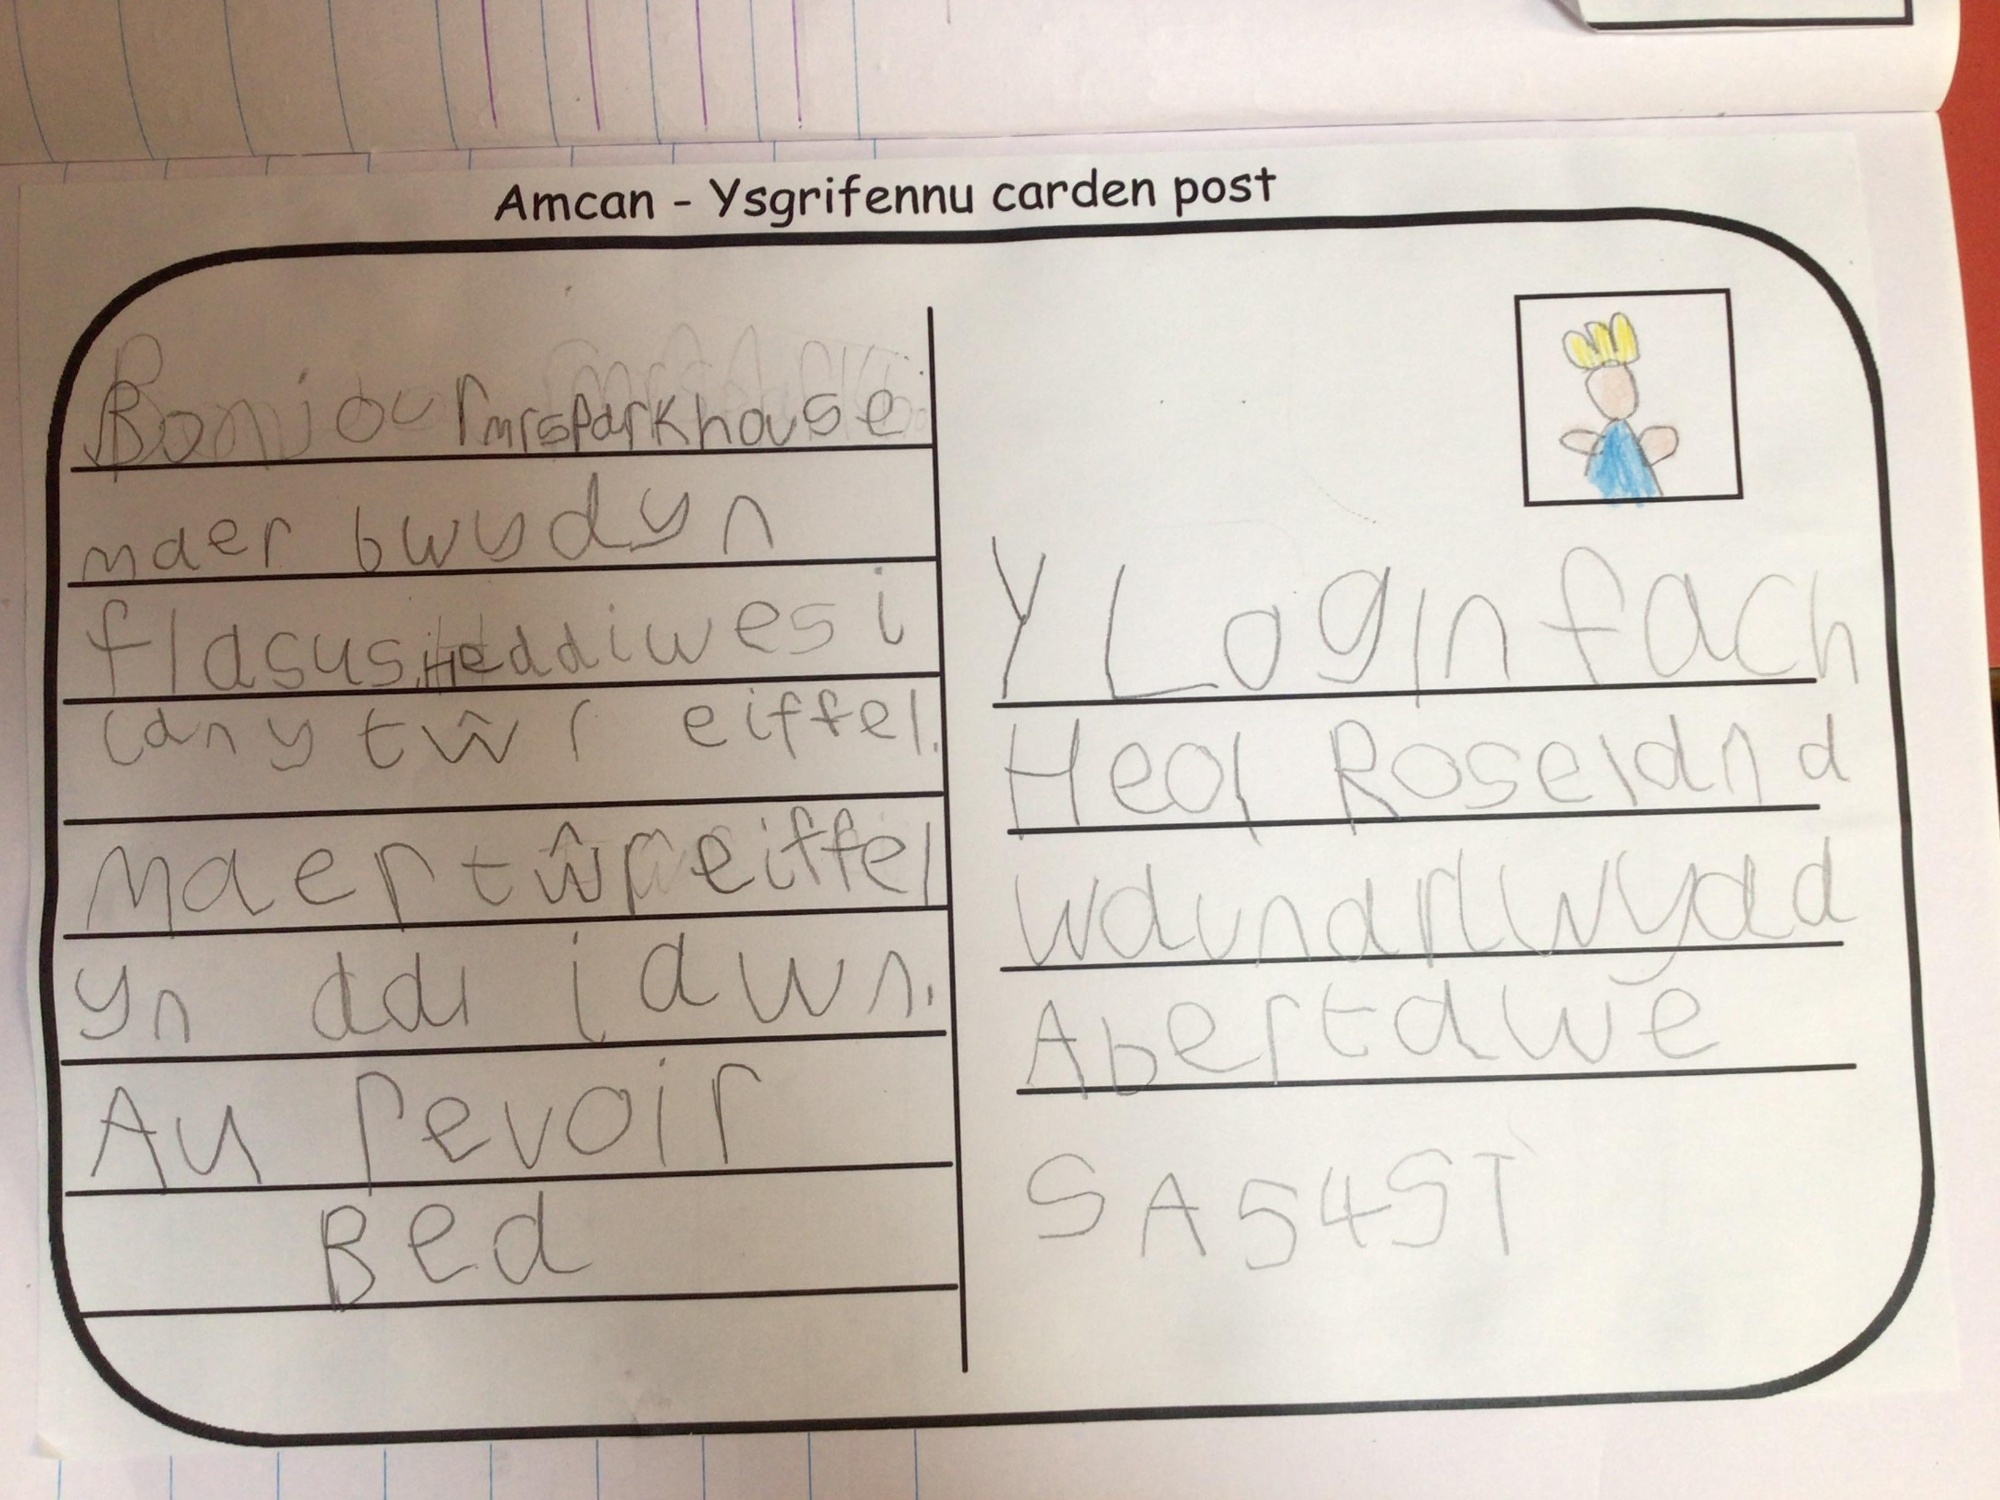 Amcan - Ysgrifennu carden post
Bonjour mrs parkhouse
maer bwud yn
flasus. Heddiw es i
lan y tŵr eiffel.
Maer tŵr eiffel
yn ddu iawn.
Au revoir
Bed
Y Login fach
Heol Roseland
Waunarlwydd
Abertawe
SA54ST